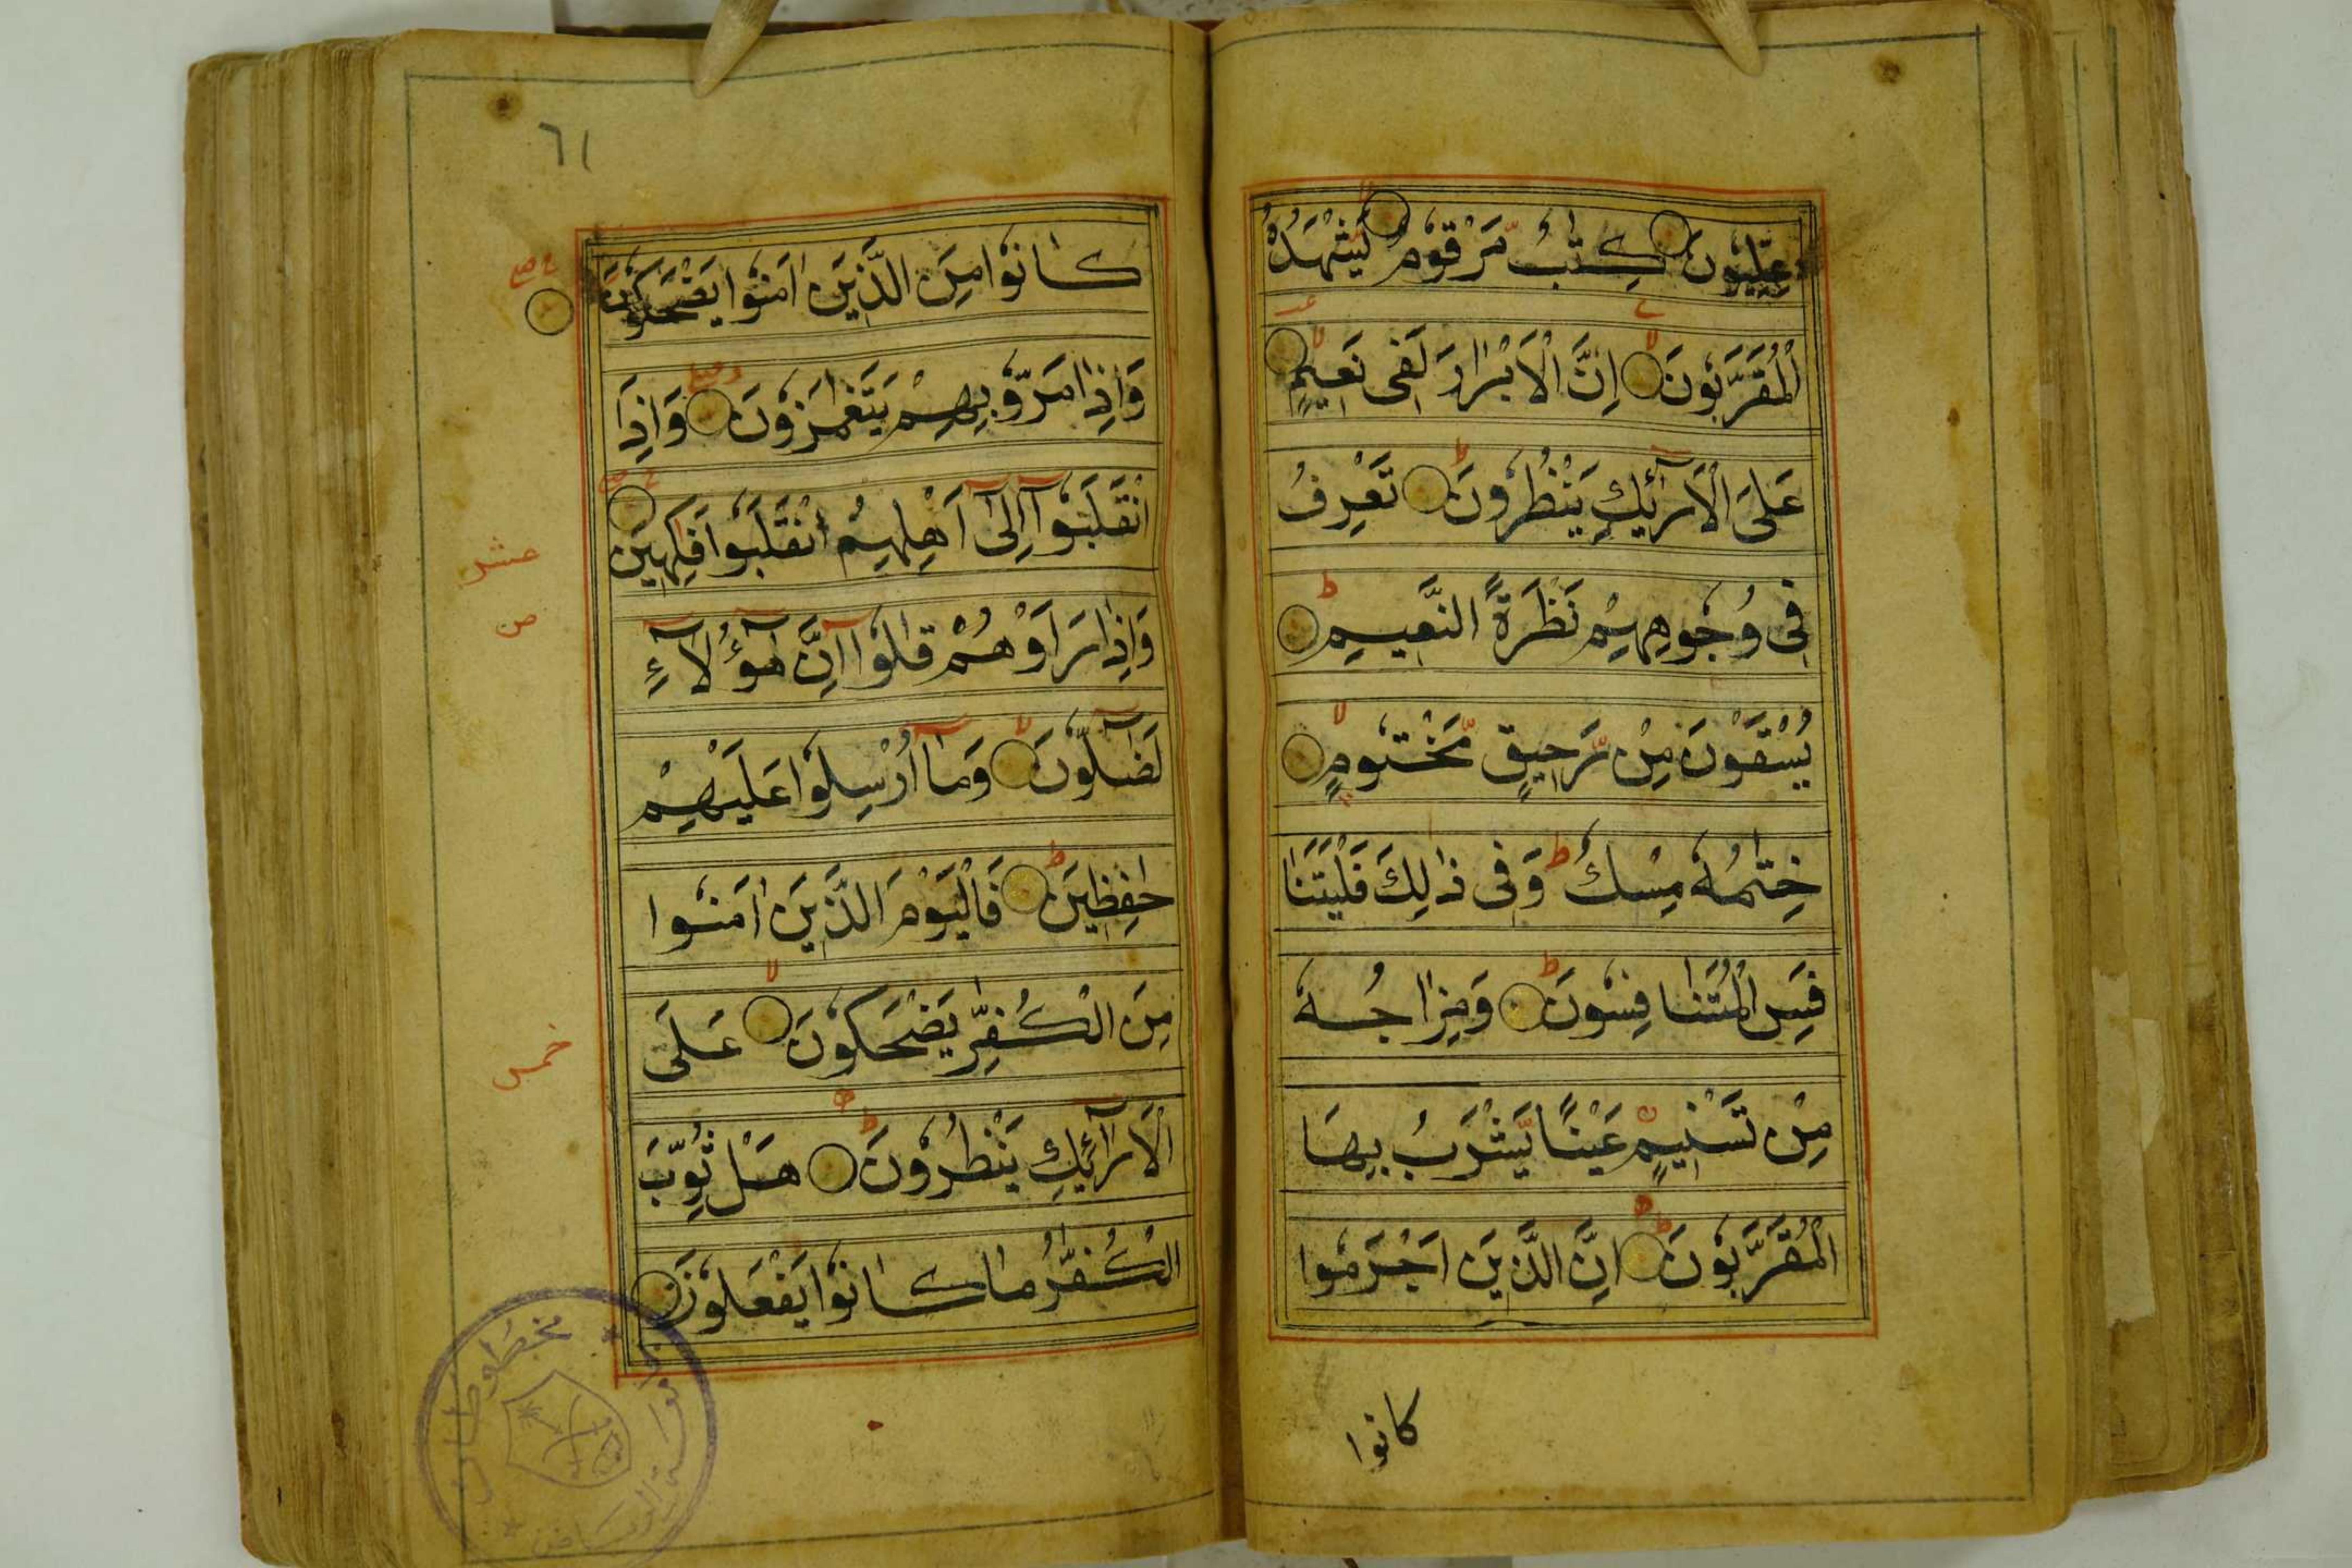 عِلِّيُّوْنَ كِتٰبٌ مَّرْقُوْمٌ يَّشْهَدُهُ
الْمُقَرَّبُوْنَ اِنَّ الْاَبْرَارَ لَفِیْ نَعِيْمٍ
عَلَی الْاَرَآئِكِ يَنْظُرُوْنَ تَعْرِفُ
فِیْ وُجُوْهِهِمْ نَظْرَةً النَّعِيْمِ
يُسْقَوْنَ مِنْ رَّحِيْقٍ مَّخْتُوْمٍ
خِتٰمُهٗ مِسْكٌ ط وَفِیْ ذٰلِكَ فَلْيَتَنَا
فَسِ الْمُتَنَافِسُوْنَ وَمِزَاجُهٗ
مِنْ تَسْنِيْمٍ عَيْنًا يَّشْرَبُ بِهَا
الْمُقَرَّبُوْنَ اِنَّ الَّذِيْنَ اَجْرَمُوْا
كانوا
٦١
كَانُوْا مِنَ الَّذِيْنَ اٰمَنُوْا يَضْحَكُوْنَ
وَاِذَا مَرُّوْ بِهِمْ يَتَغَمَزُوْنَ وَاِذَا
انْقَلَبُوْآ اِلٰٓی اَهْلِهِمُ انْقَلَبُوْا فَكِهِيْنَ
عشر
وَاِذَا رَاَوْهُمْ قٰلُوْآ اِنَّ هٰٓؤُلَآءِ
لَضَآلُّوْنَ وَمَآ اُرْسِلُوْا عَلَيْهِمْ
حٰفِظِيْنَ فَالْيَوْمَ الَّذِيْنَ اٰمَنُوْا
مِنَ الْكُفِّرِ يَضْحَكُوْنَ عَلَی
خمس
الْاَرَآئِكِ يَنْظُرُوْنَ هَلْ ثُوِّبَ
الْكُفّٰرُ مَا كَانُوْا يَفْعَلُوْنَ
مخطوطات
الرياض